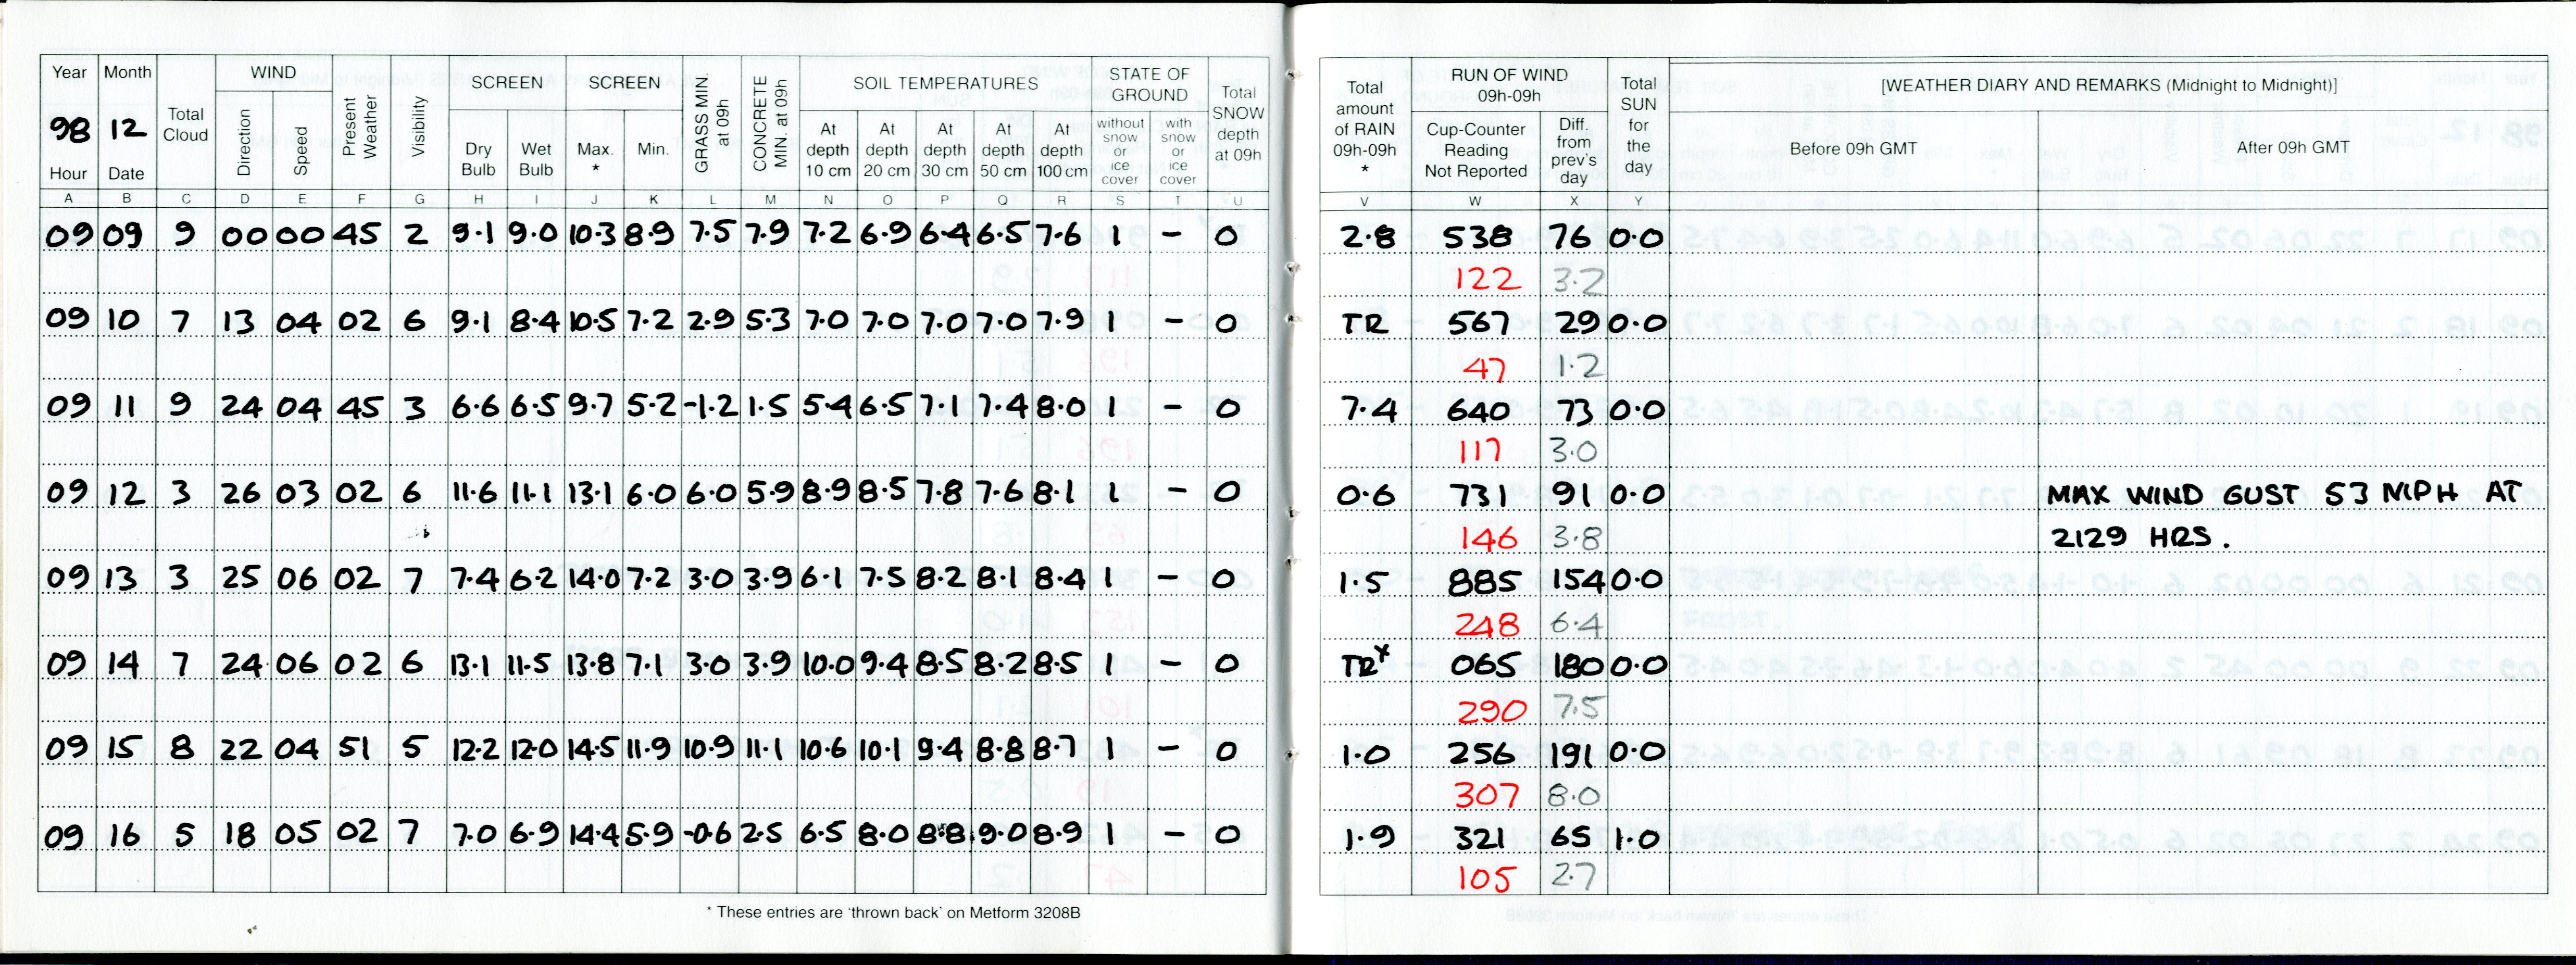 Year Month Total Cloud WIND Present Weather Visibility SCREEN SCREEN GRASS MIN. at 09h CONCRETE MIN. at 09h SOIL TEMPERATURES STATE OF GROUND Total SNOW depth at 09h Total amount of RAIN 09h-09h * RUN OF WIND 09h-09h Total SUN for the day [WEATHER DIARY AND REMARKS (Midnight to Midnight)]
98 12 Direction Speed Dry Bulb Wet Bulb Max. * Min. At depth 10 cm At depth 20 cm At depth 30 cm At depth 50 cm At depth 100 cm without snow or ice cover with snow or ice cover Cup-Counter Reading Not Reported Diff. from prev's day Before 09h GMT After 09h GMT
Hour Date
A B C D E F G H I J K L M N O P Q R S T U V W X Y
09 09 9 00 00 45 2 9.1 9.0 10.3 8.9 7.5 7.9 7.2 6.9 6.4 6.5 7.6 1 - 0 2.8 538 76 0.0
122 3.2
09 10 7 13 04 02 6 9.1 8.4 10.5 7.2 2.9 5.3 7.0 7.0 7.0 7.0 7.9 1 - 0 TR 567 29 0.0
47 1.2
09 11 9 24 04 45 3 6.6 6.5 9.7 5.2 -1.2 1.5 5.4 6.5 7.1 7.4 8.0 1 - 0 7.4 640 73 0.0
117 3.0
09 12 3 26 03 02 6 11.6 11.1 13.1 6.0 6.0 5.9 8.9 8.5 7.8 7.6 8.1 1 - 0 0.6 731 91 0.0 MAX WIND GUST 53 MPH AT
146 3.8 2129 HRS.
09 13 3 25 06 02 7 7.4 6.2 14.0 7.2 3.0 3.9 6.1 7.5 8.2 8.1 8.4 1 - 0 1.5 885 154 0.0
248 6.4
09 14 7 24 06 02 6 13.1 11.5 13.8 7.1 3.0 3.9 10.0 9.4 8.5 8.2 8.5 1 - 0 TR* 065 180 0.0
290 7.5
09 15 8 22 04 51 5 12.2 12.0 14.5 11.9 10.9 11.1 10.6 10.1 9.4 8.8 8.7 1 - 0 1.0 256 191 0.0
307 8.0
09 16 5 18 05 02 7 7.0 6.9 14.4 5.9 -0.6 2.5 6.5 8.0 8.8 9.0 8.9 1 - 0 1.9 321 65 1.0
105 2.7
* These entries are 'thrown back' on Metform 3208B